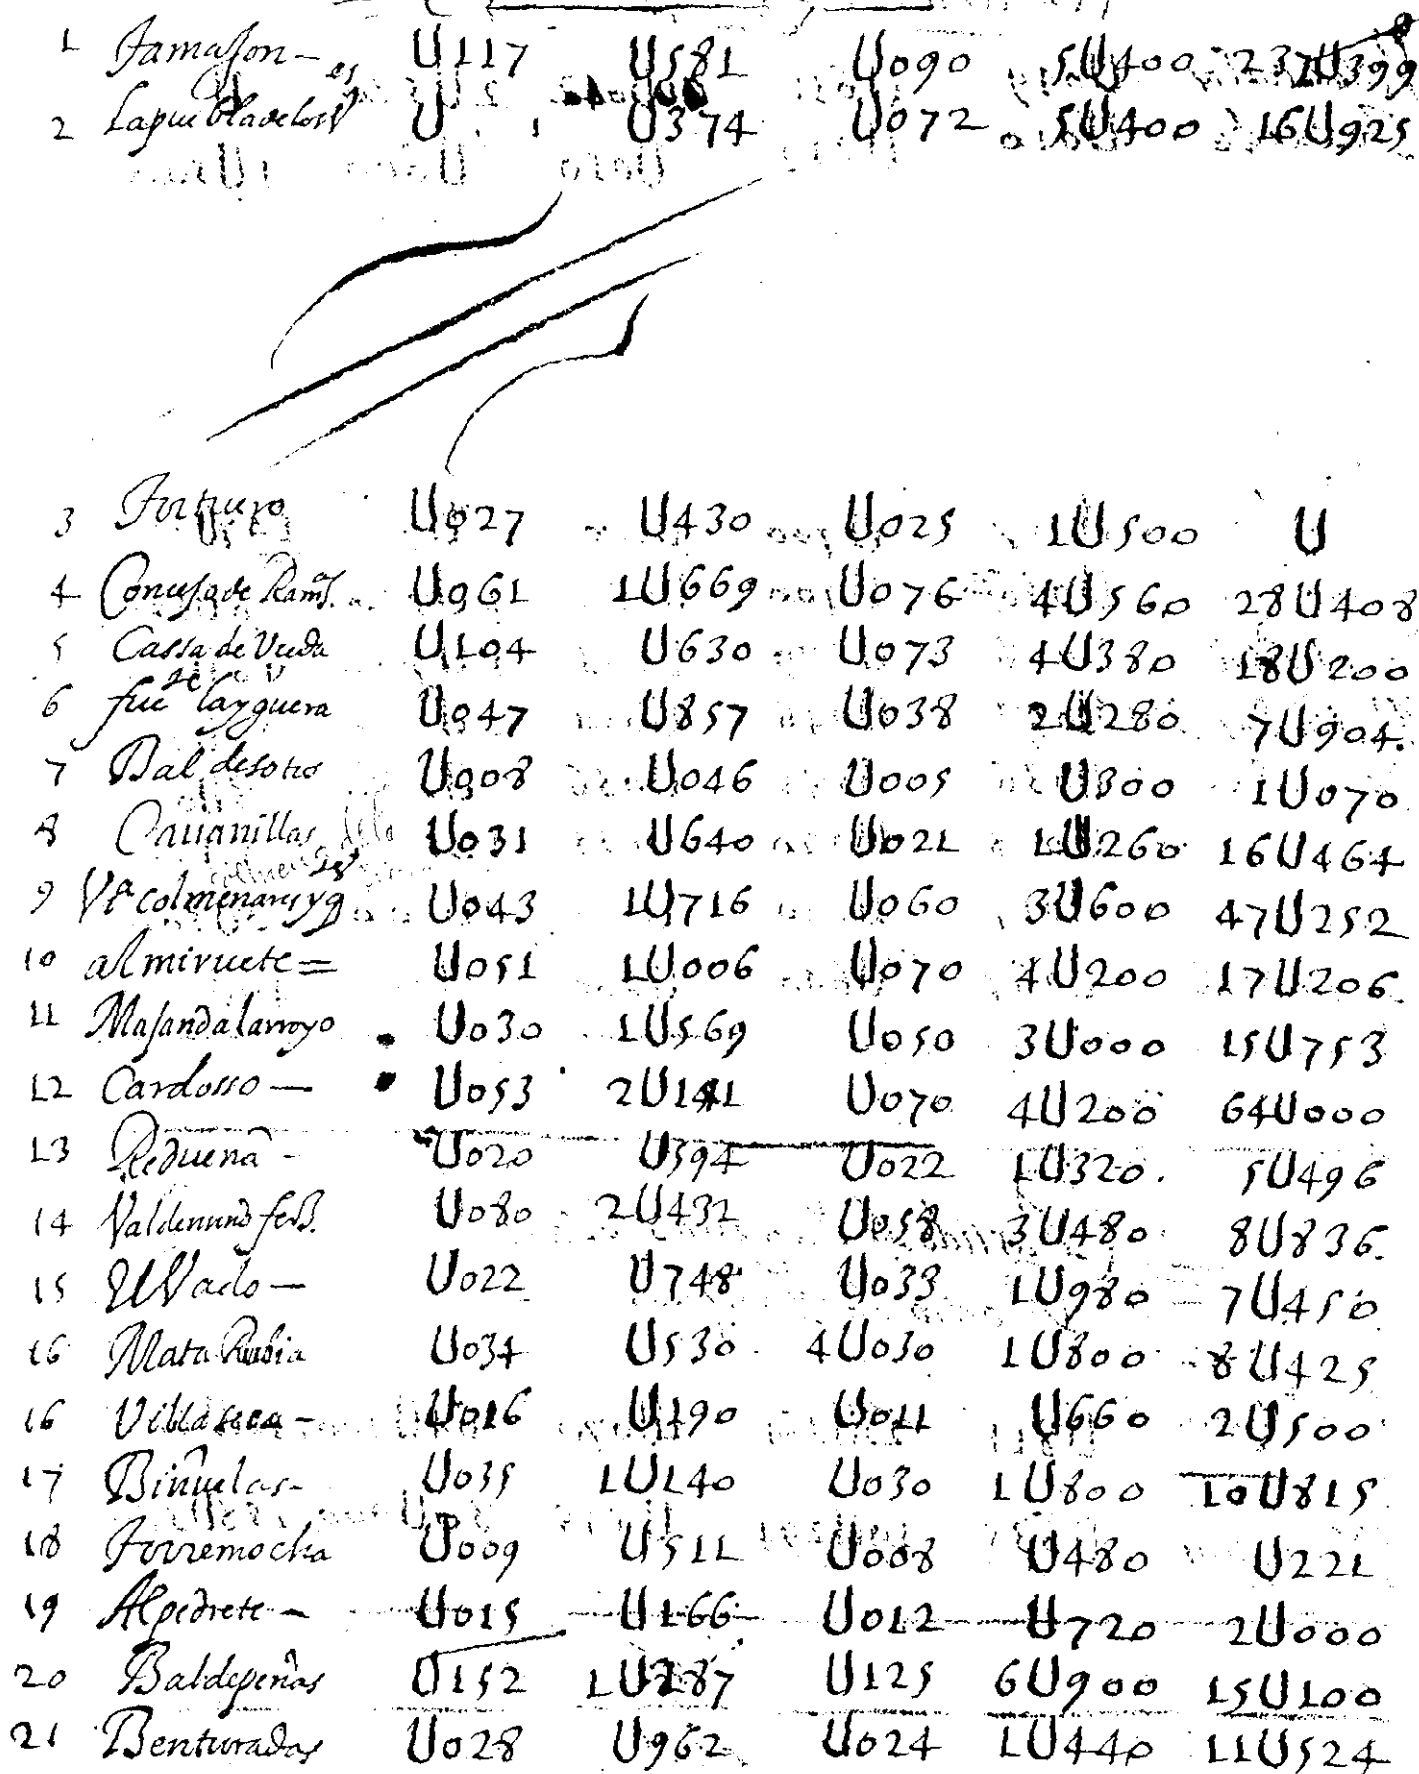 1 Tamajon - U117 U581 U090 5U400 237U399
2 Lapuebla delos es V U U374 U072 5U400 16U925
3 Tortuero U027 U430 U025 1U500 U
4 Concesa de Rams. U061 1U669 U076 4U560 28U408
5 Cassa de Uceda U104 U630 U073 4U380 18U200
6 fue te laxguera U047 U857 U038 2U280 7U904.
7 Baldesotos U008 U046 U005 U300 1U070
8 Cauanillas U031 U640 U021 1U260 16U464
9 Va colmenares y q U043 1U716 U060 3U600 47U252
10 almiruete = U051 1U006 U070 4U200 17U206
11 Majandalarroyo U030 1U569 U050 3U000 15U753
12 Cardosso - U053 2U141 U070 4U200 64U000
13 Redueña - U020 U394 U022 1U320. 5U496
14 Valdenuno ferz. U080 2U432 U058 3U480 8U836.
15 El Vado - U022 U748 U033 1U980 7U450
16 Mata Rubia U034 U530 4U030 1U800 8U425
16 Villaseca - U016 U190 U011 U660 2U500
17 Biñuelas - U035 1U140 U030 1U800 10U815
18 Torremocha U009 U511 U008 U480 U221
19 Alpedrete - U015 U166 U012 U720 2U000
20 Baldepeñas U152 1U287 U125 6U900 15U100
21 Benturadas U028 U962 U024 1U440 11U524